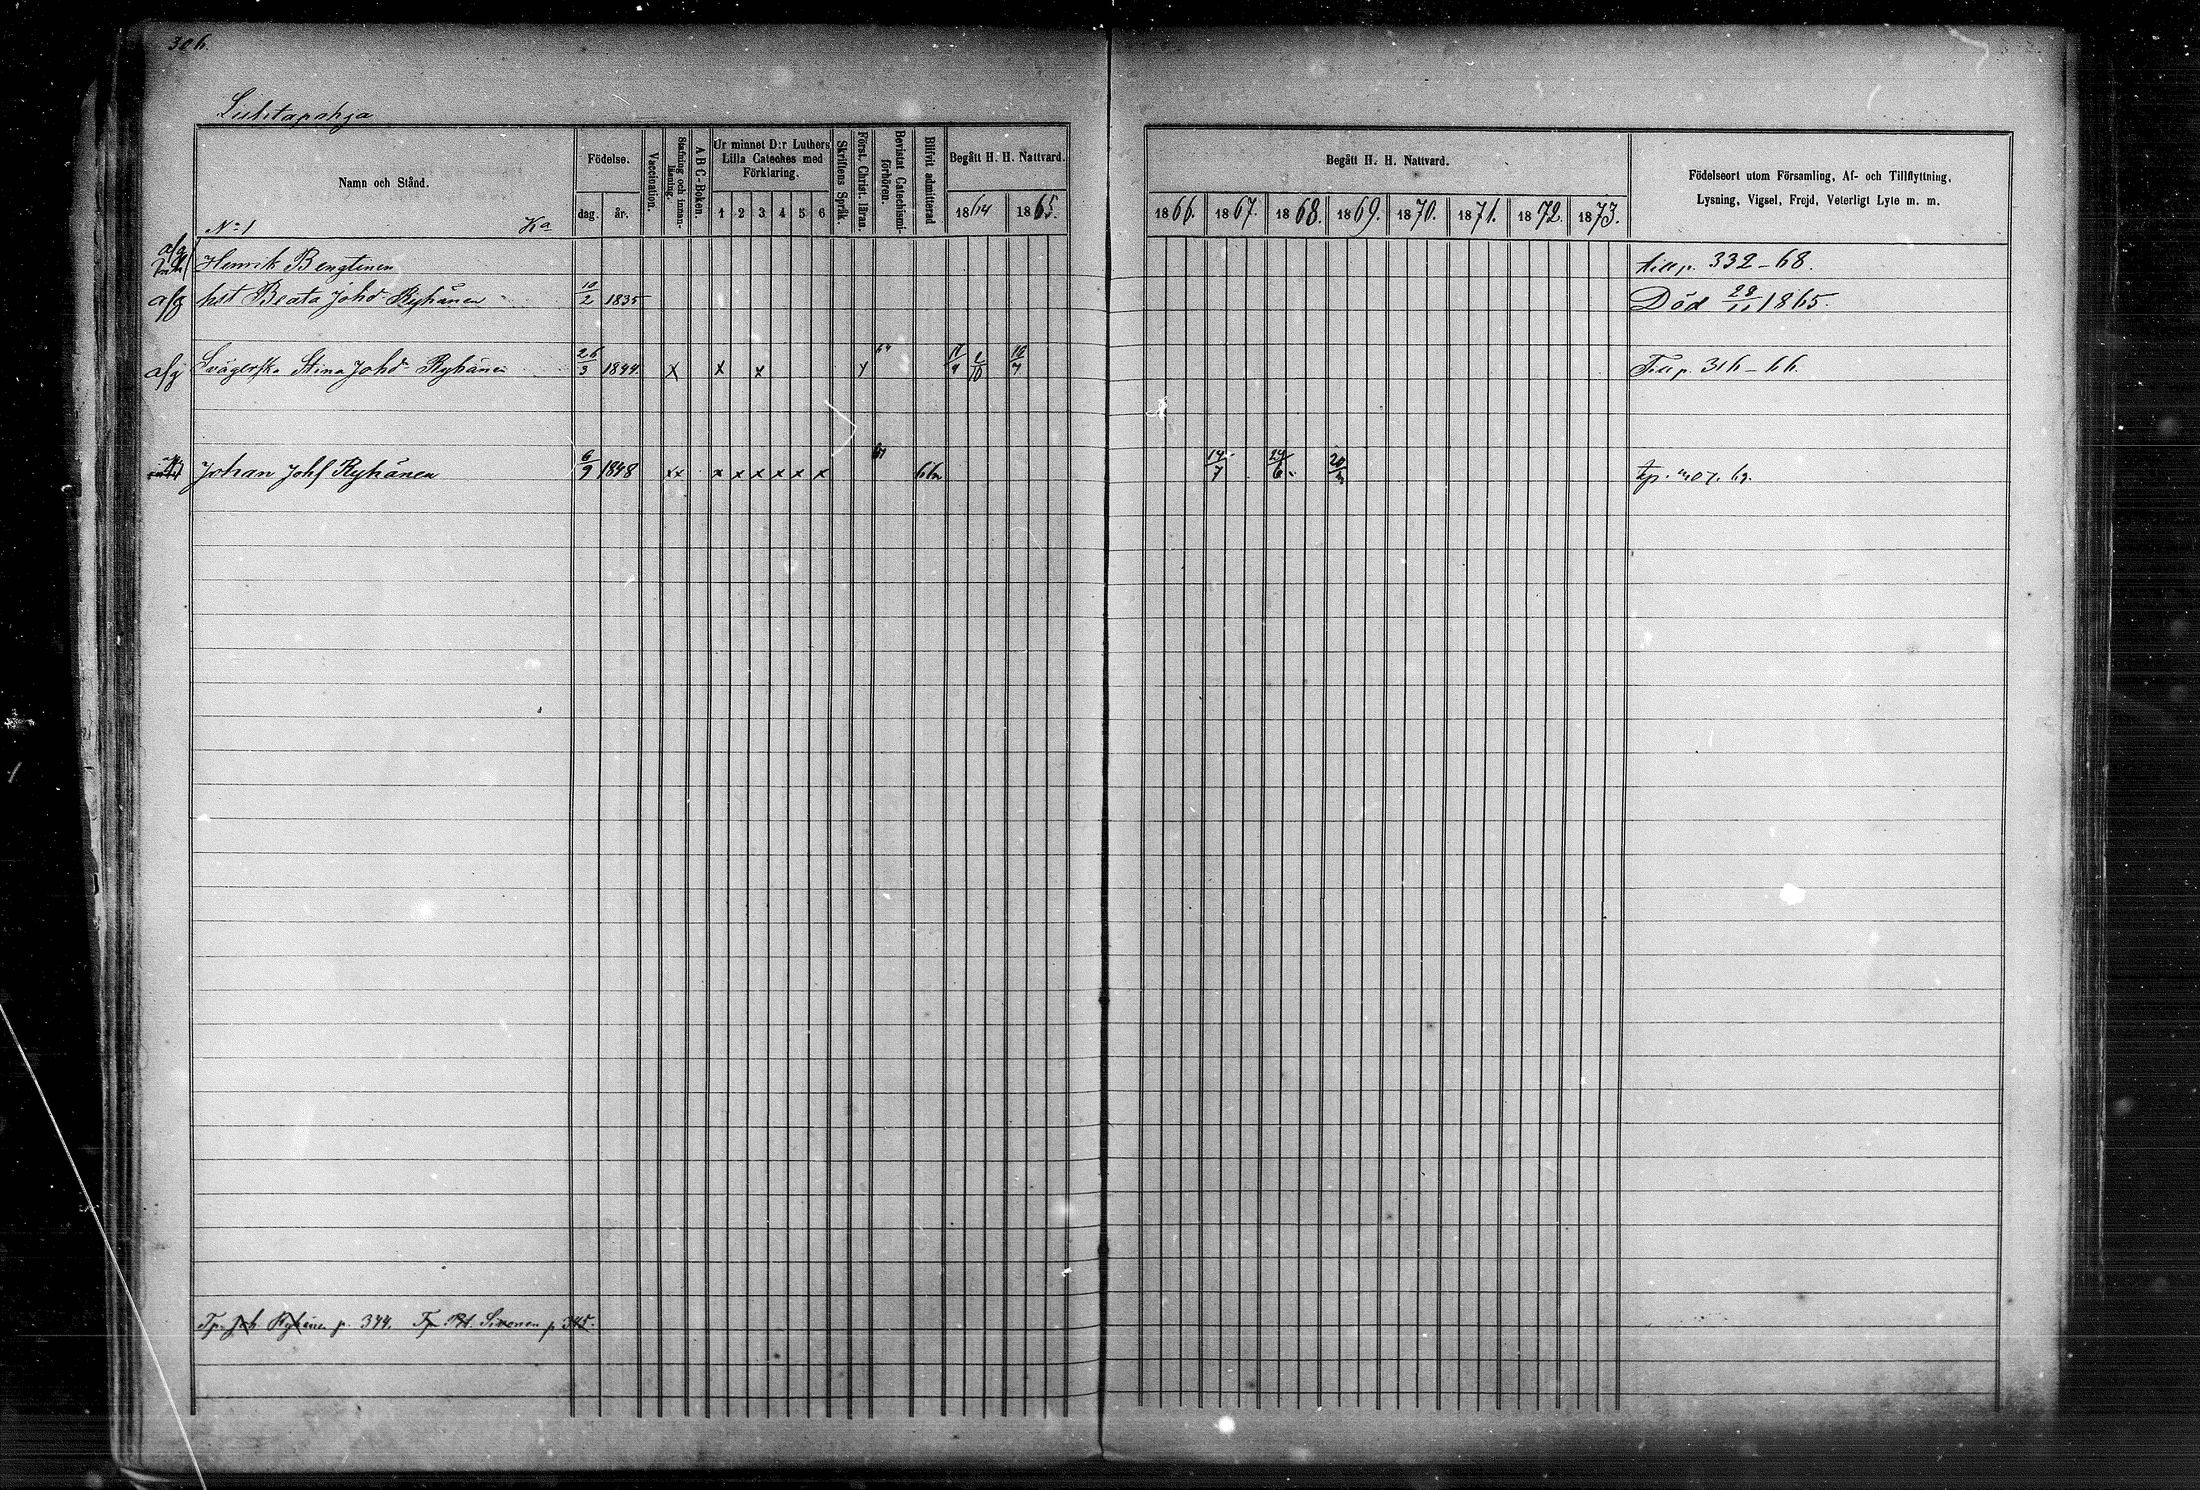 306.
Suhtapohja
Namn och Stånd. Födelse. dag. år. Vaccination. Stafning och innanläsning. A B C-Boken. Ur minnet D:r Luthers Lilla Cateches med Förklaring. 1 2 3 4 5 6 Skriftens Språk. Först. Christ. läran. Bevistat Catechismiförhören. Blifvit admitterad Begått H. H. Nattvard. 1864 1865.
Begått H. H. Nattvard. 1866. 1867. 1868. 1869. 1870. 1871. 1872. 1873. Födelseort utom Församling, Af- och Tillflyttning, Lysning, Vigsel, Frejd, Veterligt Lyte m. m.
No 1 Ka
afg Henrik Bengtinen till p. 332-68.
afg hst Beata Johd Ryhänen 10/2 1835 Död 28/11 1865.
afg Svägerska Stina Johd Ryhänen 26/3 1844 x x x x 64 Till p. 316-66.
Johan Johs Ryhänen 6/9 1848 xx x x x x x x 67 14/7 24/6 tp.
Tp Joh. Ryhänen p. 344. Tp Pt. Simonen p. 345.